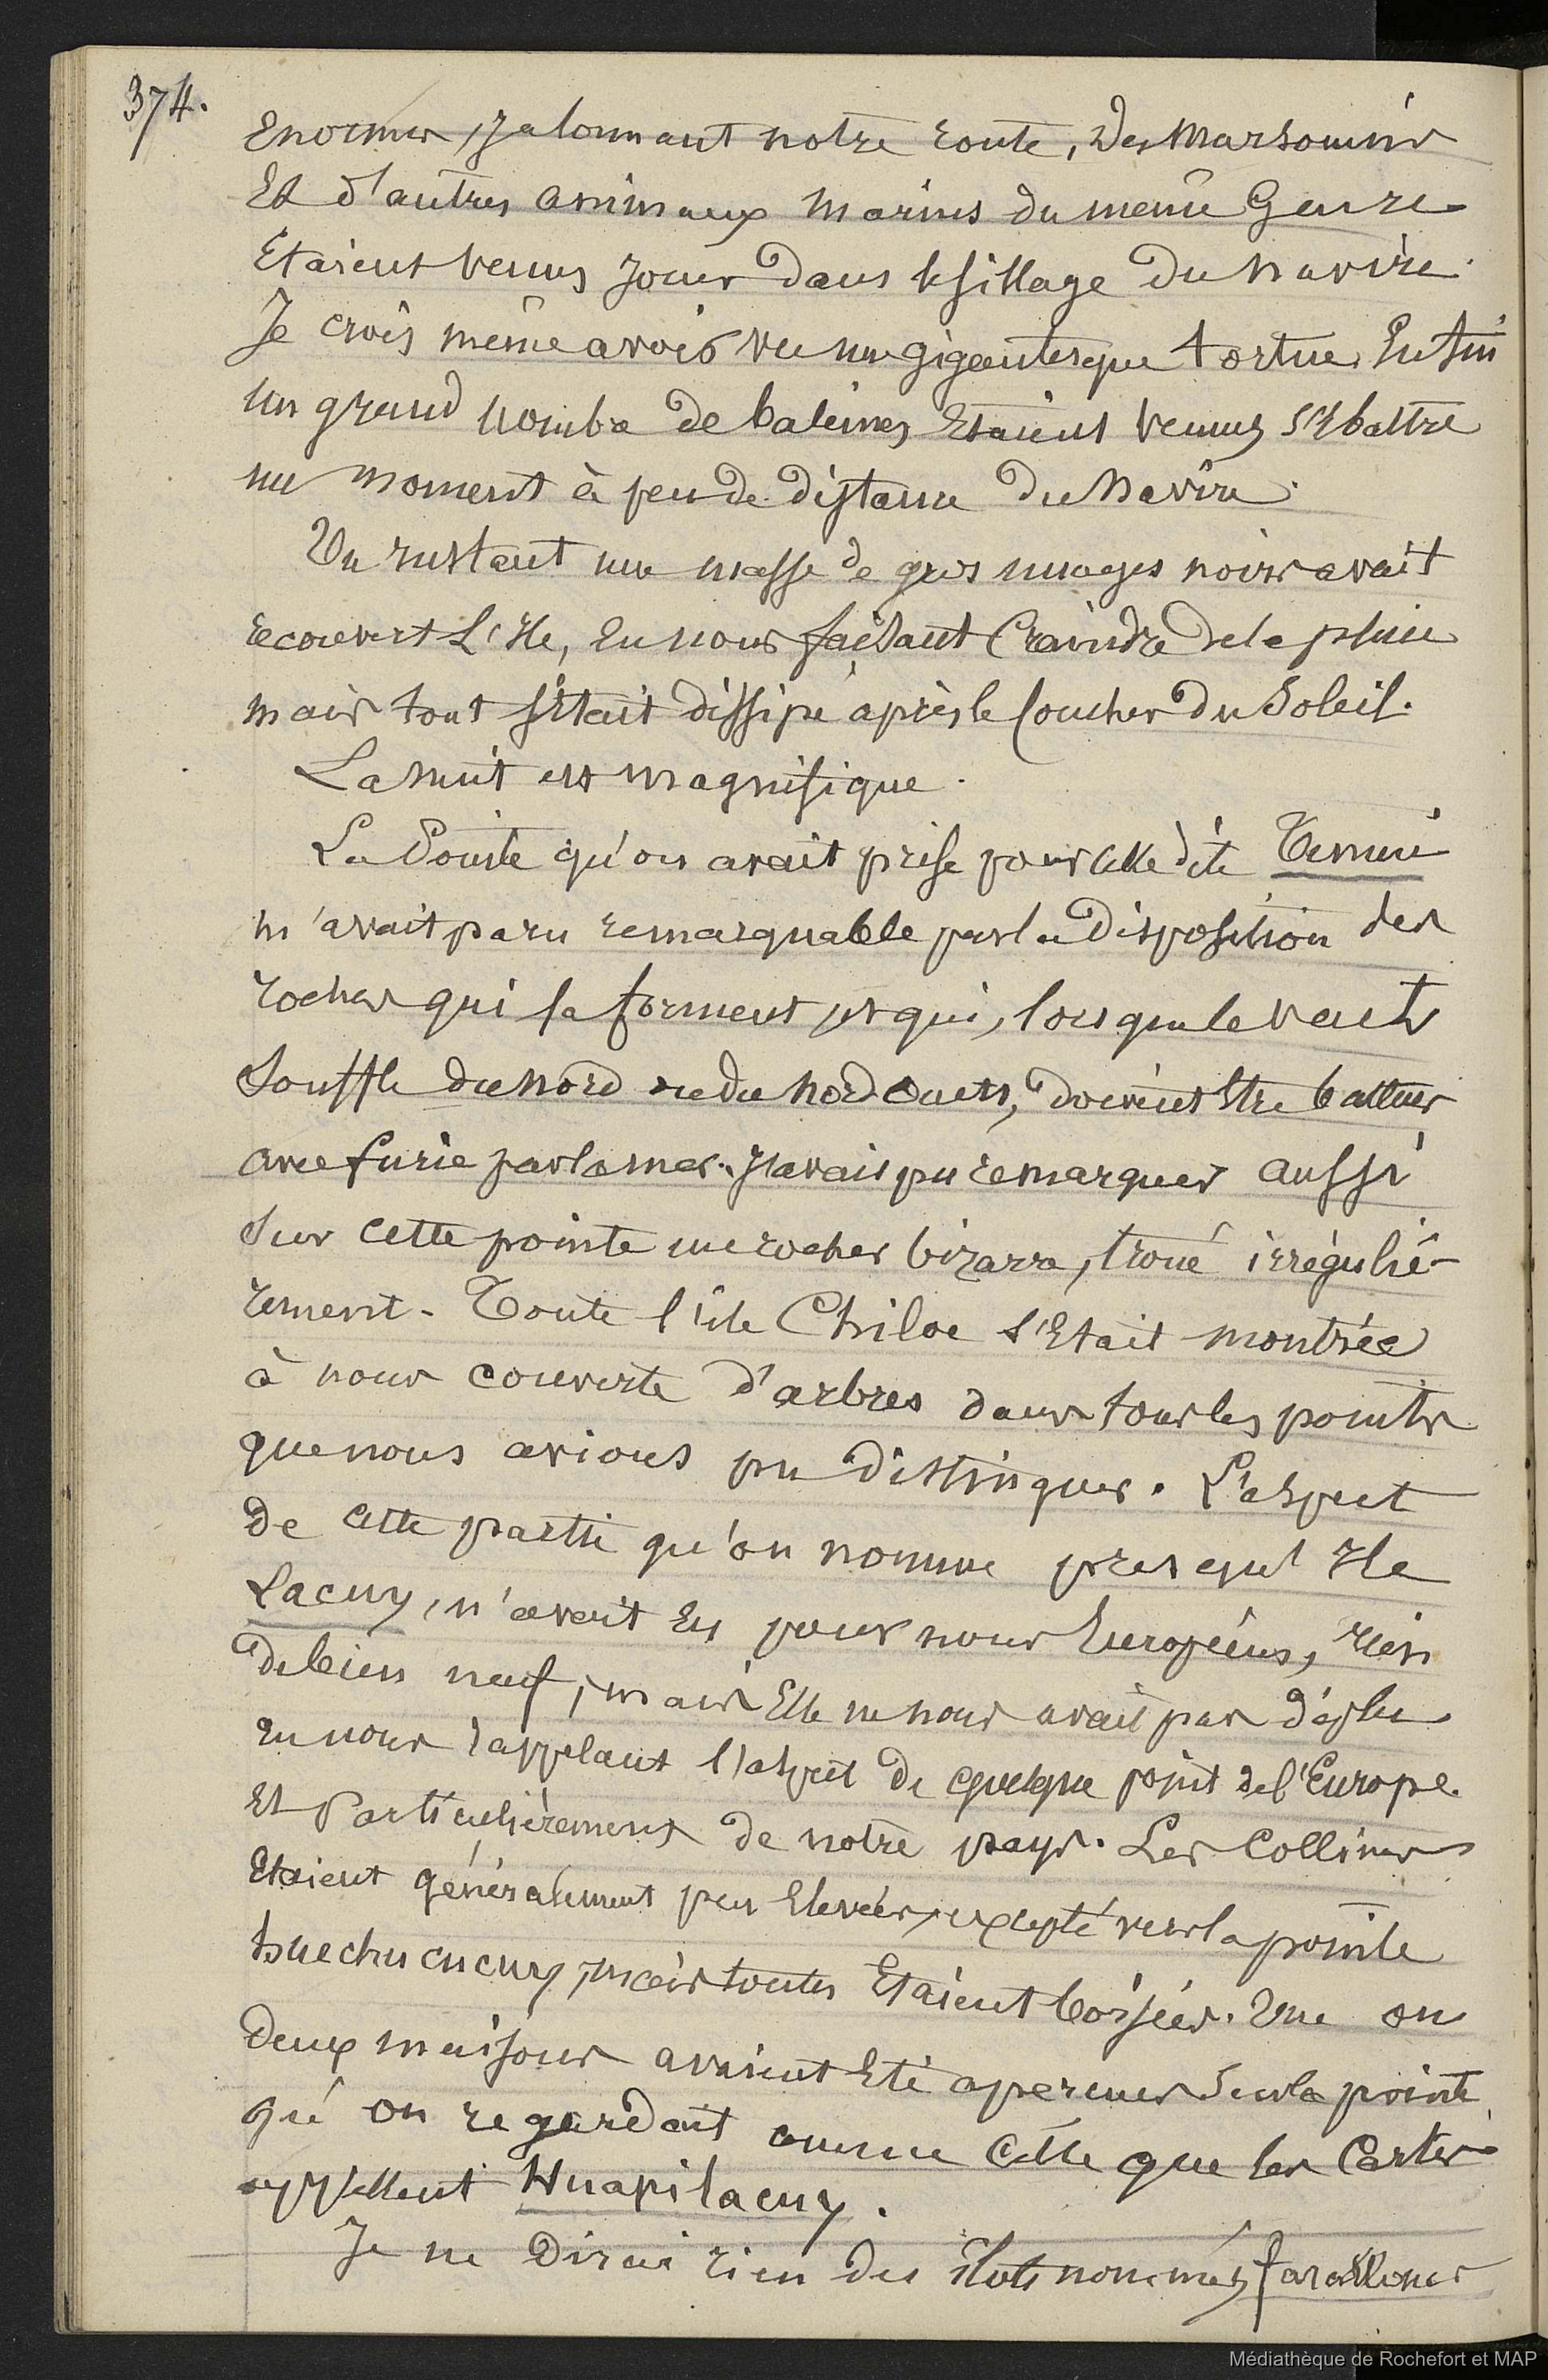 374.
Enormes, jalonnant notre route, des Marsouins
Et d'autres animaux marins du même Genre
Etaient venus jouer dans le sillage du navire.
Je crois même avoir vu une gigantesque tortue. Enfin
un grand nombre de baleines Etaient venues s'Ebattre
un moment à peu de distance du Navire.
Un instant une masse de gros nuages noirs avait
recouvert L'Ile, en nous faisant Craindre de la pluie
mais tout s'était dissipé après le Coucher du Soleil.
La Nuit est magnifique.
La Pointe qu'on avait prise pour celle dite
m'avait paru remarquable par la Disposition des
rochers qui la forment et qui, lorsque le vent
Souffle du Nord ou du Nord Ouest, doivent Etre battus
avec furie par la mer. J'avais pu remarquer aussi
Sur cette pointe un rocher bizarre, troué irréguliè-
rement. Toute l'île Chiloe s'Etait montrée
à nous couverte d'arbres dans tous les points
que nous avions pu distinguer. L'aspect
de cette partie qu'on nomme presqu'Ile
Lacuy, n'avait Eu pour nous Européens, rien
de bien neuf, mais Elle ne nous avait pas déplu
En nous rappelant l'aspect de quelque point de l'Europe
Et Particulièrement de notre pays. Les Collines
Etaient généralement peu Elevées, excepté vers la pointe
huechucucuy, mais toutes Etaient boisées. Une ou
Deux maisons avaient Eté apercues Sur la pointe
qu'on regardait comme Celle que les Cartes
appellent Huapilacuy.
Je ne Dirai rien des îlots nommés farallones
Médiathèque de Rochefort et MAP